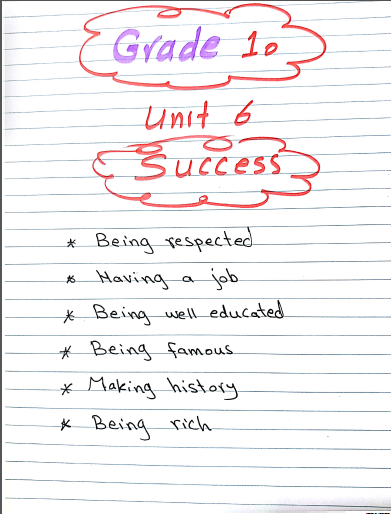 Grade 10
Unit 6
Success
* Being respected
* Having a job
* Being well educated
* Being famous
* Making history
* Being rich